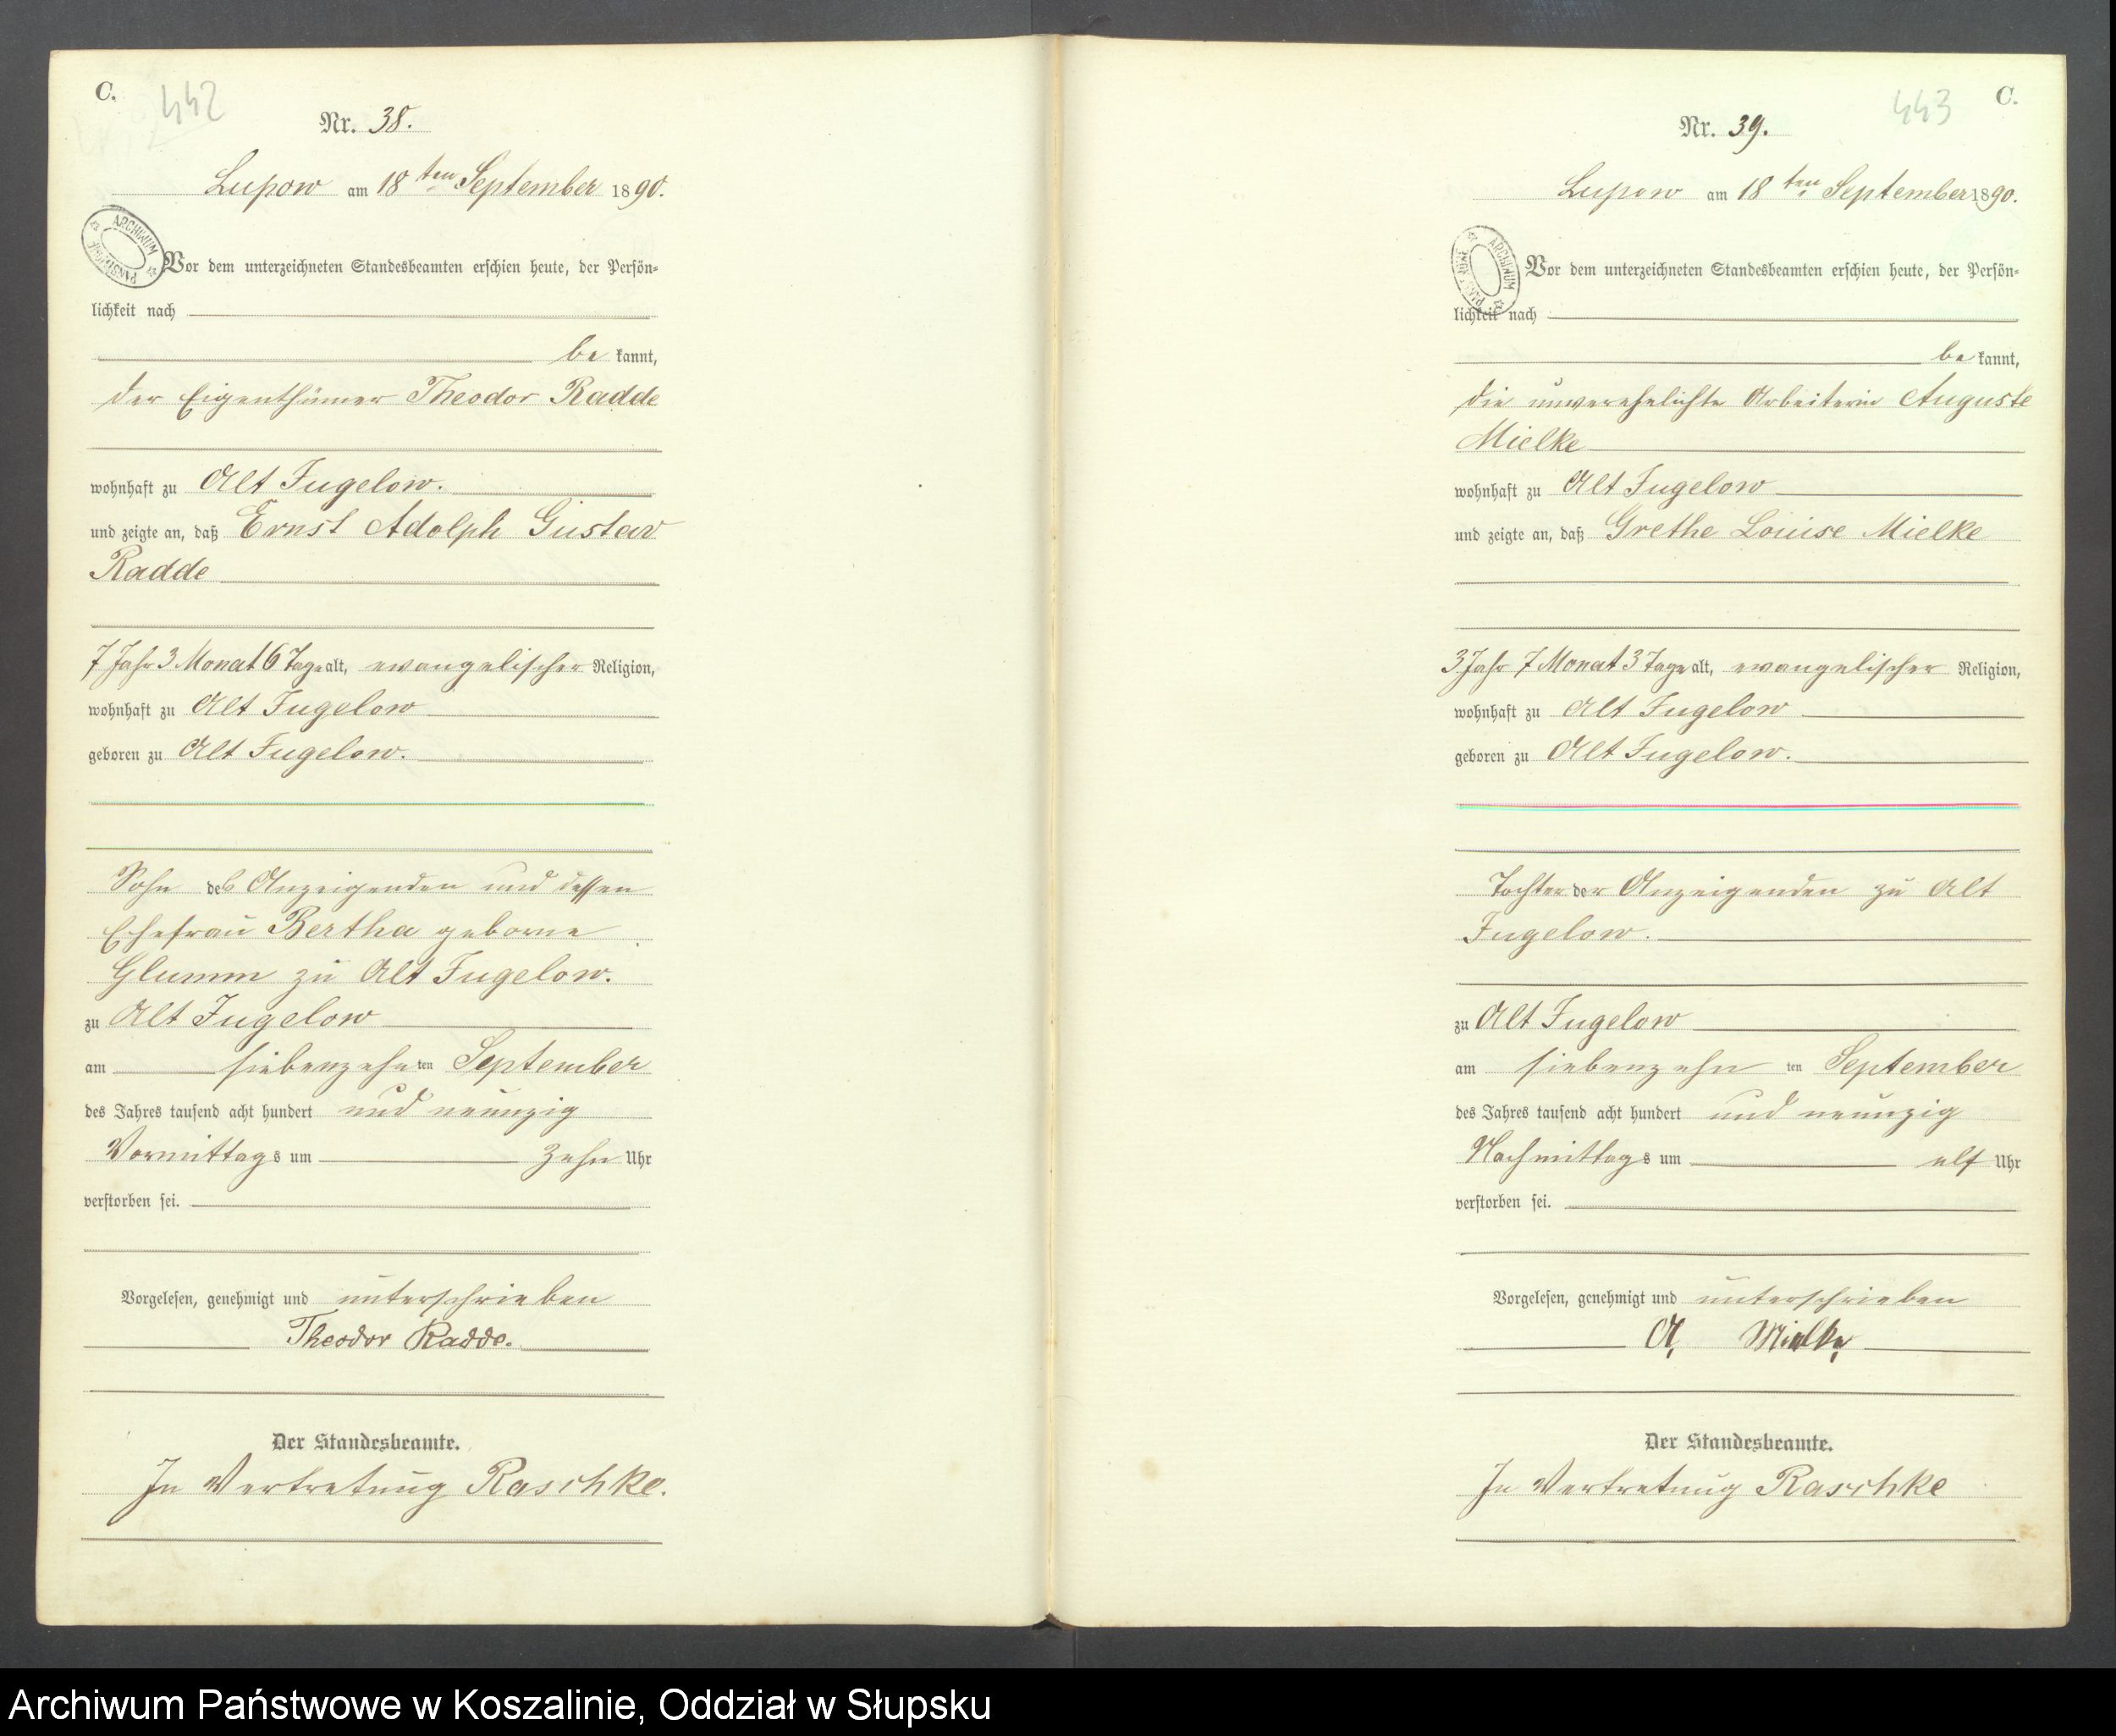 C.
442
Nr. 38.
Lupow am 18ten September 1890.
ARCHIWUM PAŃSTWOWE
Vor dem unterzeichneten Standesbeamten erschien heute, der Persön-
lichkeit nach
be kannt,
der Eigenthümer Theodor Radde
wohnhaft zu Alt Jugelow.
und zeigte an, daß Ernst Adolph Gustav
Radde
7 Jahr 3 Monat 6 Tage alt, evangelischer Religion,
wohnhaft zu Alt Jugelow
geboren zu Alt Jugelow.
Sohn des Anzeigenden und dessen
Ehefrau Bertha geborne
Glumm zu Alt Jugelow.
zu Alt Jugelow
am siebenzehn ten September
des Jahres tausend acht hundert und neunzig
Vormittags um zehn Uhr
verstorben sei.
Vorgelesen, genehmigt und unterschrieben
Theodor Radde.
Der Standesbeamte.
In Vertretung Raschke.
C.
443
Nr. 39.
Lupow am 18ten September 1890.
ARCHIWUM PAŃSTWOWE
Vor dem unterzeichneten Standesbeamten erschien heute, der Persön-
lichkeit nach
be kannt,
die unverehelichte Arbeiterin Auguste
Mielke
wohnhaft zu Alt Jugelow
und zeigte an, daß Grethe Louise Mielke
3 Jahr 7 Monat 3 Tage alt, evangelischer Religion,
wohnhaft zu Alt Jugelow
geboren zu Alt Jugelow.
Tochter der Anzeigenden zu Alt
Jugelow.
zu Alt Jugelow
am siebenzehn ten September
des Jahres tausend acht hundert und neunzig
Nachmittags um elf Uhr
verstorben sei.
Vorgelesen, genehmigt und unterschrieben
A. Mielke
Der Standesbeamte.
In Vertretung Raschke
Archiwum Państwowe w Koszalinie, Oddział w Słupsku